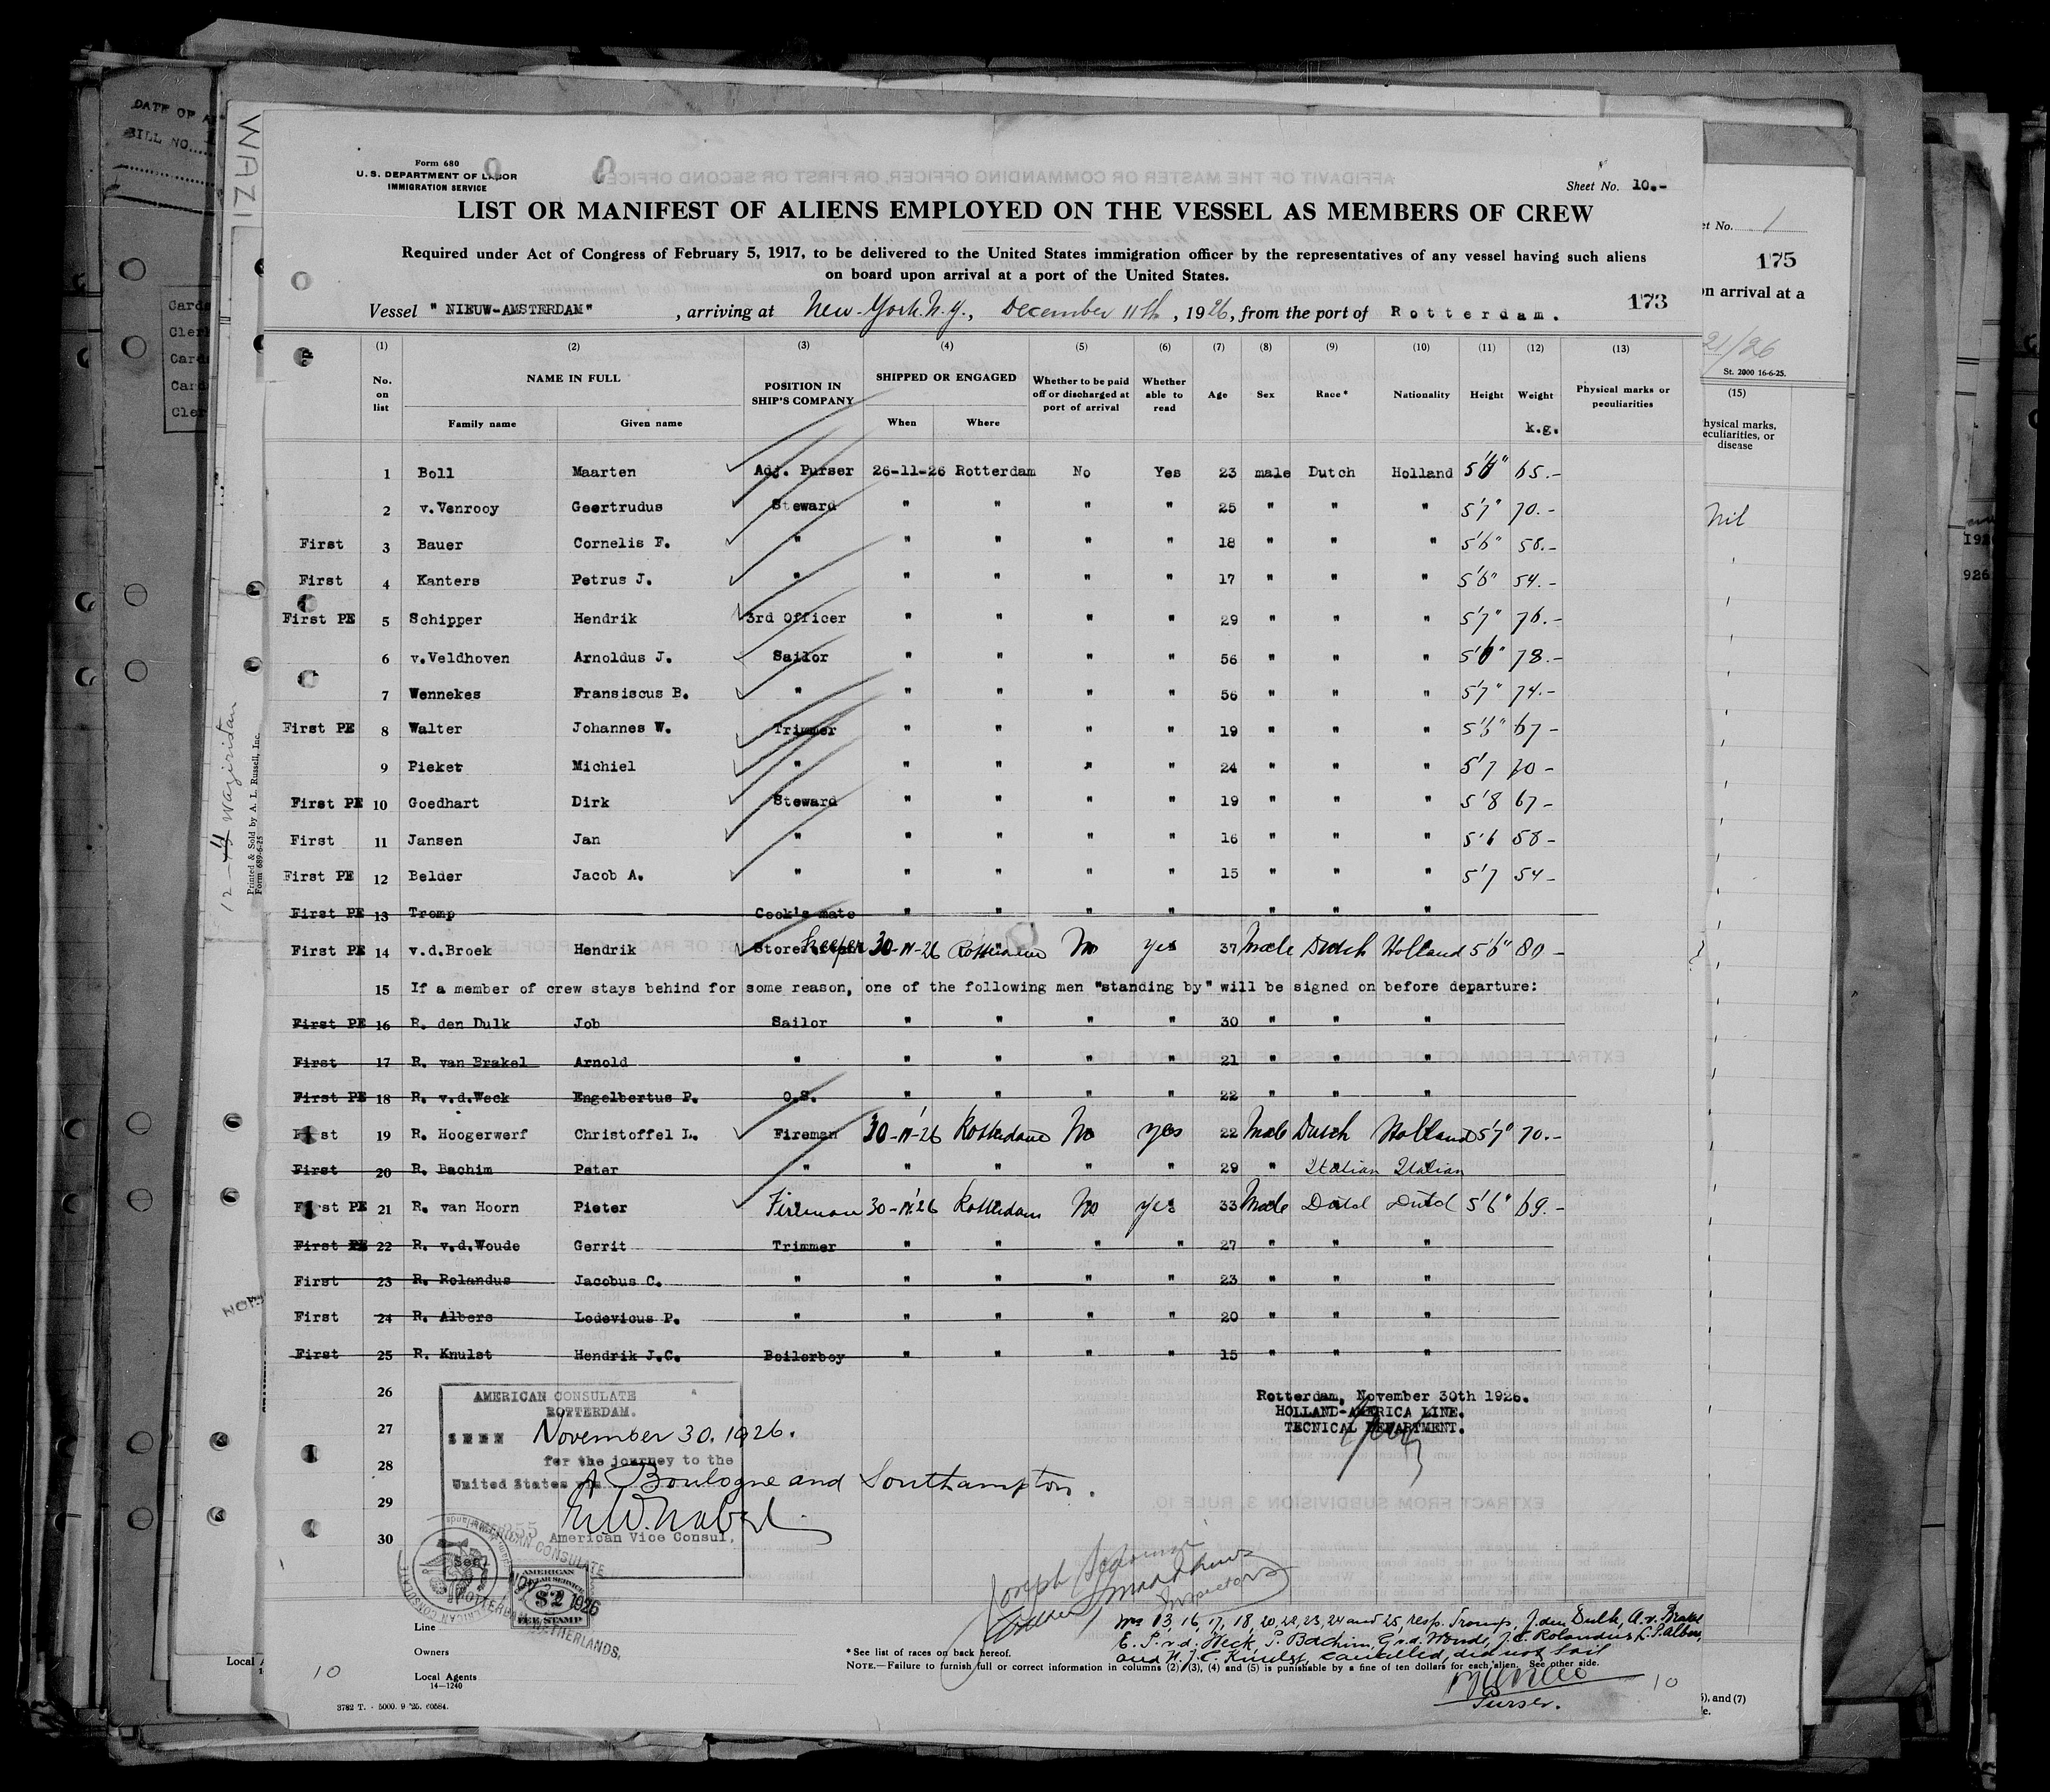 DATE OF A
BILL NO.....
WAZI
Form 680
U.S. DEPARTMENT OF LABOR
IMMIGRATION SERVICE
Sheet No. 10.-
LIST OR MANIFEST OF ALIENS EMPLOYED ON THE VESSEL AS MEMBERS OF CREW
Required under Act of Congress of February 5, 1917, to be delivered to the United States immigration officer by the representatives of any vessel having such aliens
on board upon arrival at a port of the United States.
173
Vessel " NIEUW-AMSTERDAM" , arriving at New York. N.Y., December 11th , 1926, from the port of Rotterdam.
(1) (2) (3) (4) (5) (6) (7) (8) (9) (10) (11) (12) (13)
No. on list NAME IN FULL Family name Given name POSITION IN SHIP'S COMPANY SHIPPED OR ENGAGED When Where Whether to be paid off or discharged at port of arrival Whether able to read Age Sex Race* Nationality Height Weight Physical marks or peculiarities
k.g.
1 Boll Maarten Adj. Purser 26-11-26 Rotterdam No Yes 23 male Dutch Holland 65.-
2 v.Venrooy Geertrudus Steward " " " " 25 " " " 5'7" 70.-
First 3 Bauer Cornelis F. " " " " " 18 " " " 5'6" 58.-
First 4 Kanters Petrus J. " " " " " 17 " " " 5'6" 54.-
First PE 5 Schipper Hendrik 3rd Officer " " " " 29 " " " 5'7" 76.-
6 v.Veldhoven Arnoldus J. Sailor " " " " 56 " " " 78.-
7 Wennekes Fransiscus B. " " " " " 56 " " " 5'7" 74.-
First PE 8 Walter Johannes W. Trimmer " " " " 19 " " " 67-
9 Pieket Michiel " " " " " 24 " " " 5'7 70-
First PE 10 Goedhart Dirk Steward " " " " 19 " " " 5'8 67-
First 11 Jansen Jan " " " " " 16 " " " 5'6 58-
First PE 12 Belder Jacob A. " " " " " 15 " " " 5'7 54-
First PE 13 Tromp Cook's mate " " " " " " "
First PE 14 v.d.Broek Hendrik Storekeeper 30-11-26 Rotterdam No yes 37 Male Dutch Holland 5'6" 80-
15 If a member of crew stays behind for some reason, one of the following men "standing by" will be signed on before departure:
First PE 16 R. den Dulk Job Sailor " " " " 30 " " "
First 17 R. van Brakel Arnold " " " " " 21 " " "
First PE 18 R. v.d.Weck Engelbertus P. O.S. " " " " 22 " " "
First 19 R. Hoogerwerf Christoffel L. Fireman 30-11-'26 Rotterdam No yes 22 Male Dutch Holland 5'7" 70.-
First 20 R. Bachim Peter " " " " " 29 " Italian Italian
First PE 21 R. van Hoorn Pieter Fireman 30-11-'26 Rotterdam No yes 33 Male Dutch Dutch 5'6" 69.-
First PE 22 R. v.d.Woude Gerrit Trimmer " " " " 27 " " "
First 23 R. Rolandus Jacobus C. " " " " " 23 " " "
First 24 R. Albers Lodevicus P. " " " " " 20 " " "
First 25 R. Knulst Hendrik J.C. Boilerboy " " " " 15 " " "
26
27
28
29
30
AMERICAN CONSULATE
ROTTERDAM.
SEEN November 30. 1926.
for the journey to the
United States via Boulogne and Southampton.
American Vice Consul,
Rotterdam, November 30th 1926.
HOLLAND-AMERICA LINE.
TECNICAL DEPARTMENT.
AMERICAN CONSULATE
ROTTERDAM, NETHERLANDS.
AMERICAN CONSULAR SERVICE
$2
1926
FEE STAMP
Joseph
Inspectors
Nos 13, 16, 17, 18, 20, 22, 23, 24 and 25, resp. Tromp, J. den Dulk, A. v. Brakel
E. P. v. d. Weck, P. Bachim, G. v. d. Woude, J. C. Rolandus, L. P. Albers,
and H. J. C. Knulst, cancelled, did not sail
Purser.
Line
Owners
Local Agents
14-1240
*See list of races on back hereof.
NOTE.—Failure to furnish full or correct information in columns (2), (3), (4) and (5) is punishable by a fine of ten dollars for each alien. See other side.
10
10
3782 T. - 5000. 9 '25. 60584.
12 - Waziristan
Printed & Sold by A. L. Russell, Inc.
Form 689-6-25
Local A
et No. 1
175
on arrival at a
21/26
St. 2000 16-6-25.
(15)
hysical marks,
eculiarities, or
disease
Nil
), and (7)